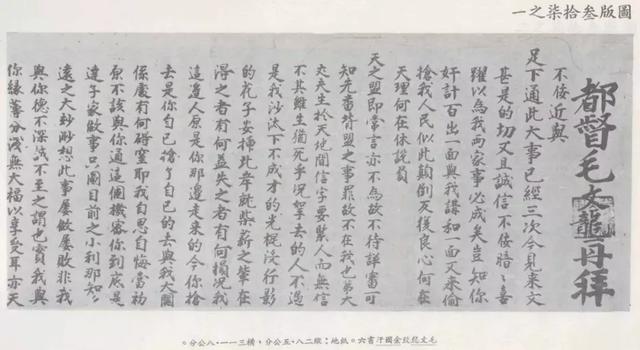 圖版叁拾柒之一
都督毛文龍再拜
不佞近與
足下通此大事已經三次今見來文
甚是的切又且誠信不佞暗〻喜
躍以為我兩家事必成矣豈知你
奸計百出一面與我講和一面又來偷
搶我人民似此顛倒反復良心何在
天理何在休說負
天之盟即常言亦不為故不待詳審可
知先番背盟之事罪故不在我也第大
丈夫生於天地間信字要緊人而無信
不其雖生猶死乎況拏去的人不過
是我沙汰下不成才的光棍沒行影
的花子安揷此島就柴薪之輩在
得之者有何益失之者有何損況我
這邊人原是你那邊走來的今你搶
去是你自已搶了自已的去與我大關
係處有何碍窒耶我自思自悔當初
原不該與你通這個機密你到底是
達子家做事只圖目前之小利那知
遠之大妙想此事屢做屢敗非我
與你德不深誠不至之謂也實我與
你緣薄分淺無大福以享受耳亦天
毛文龍致金國汗書六。紙地：縱二八·五公分，橫三一一·八公分。